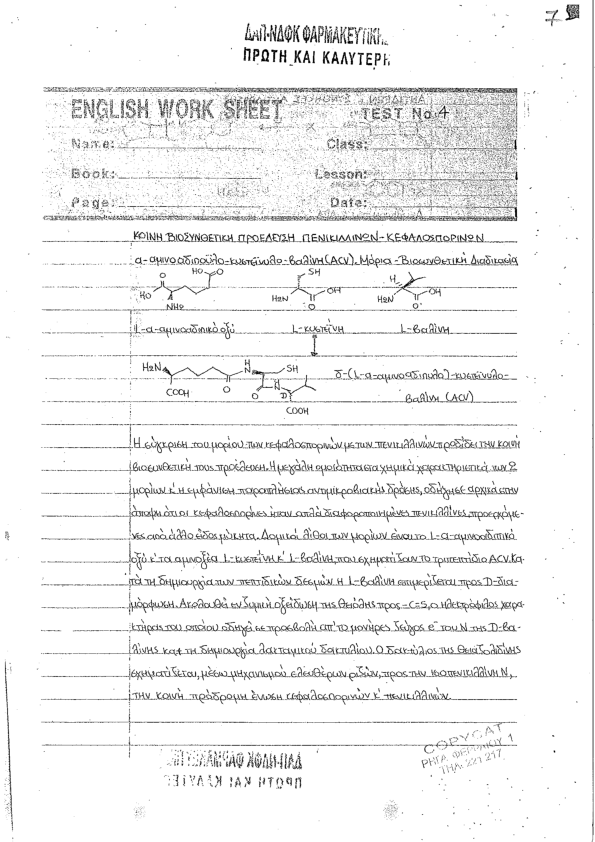 7
ΔΑΠ-ΝΔΦΚ ΦΑΡΜΑΚΕΥΤΙΚΗΣ
ΠΡΩΤΗ ΚΑΙ ΚΑΛΥΤΕΡΗ
ENGLISH WORK SHEET TEST No: 4
Name: Class:
Book: Lesson:
Page: Date:
ΚΟΙΝΗ ΒΙΟΣΥΝΘΕΤΙΚΗ ΠΡΟΕΛΕΥΣΗ ΠΕΝΙΚΙΛΛΙΝΩΝ-ΚΕΦΑΛΟΣΠΟΡΙΝΩΝ
α-αμινοαδιποϋλο-κυστεϊνυλο-βαλίνη (ACV). Μόρια-Βιοσυνθετική Διαδικασία
HO O COOH NH2 SH H2N OH O H H2N OH O
L-α-αμινοαδιπικό οξύ L-κυστεΐνη L-βαλίνη
H2N COOH O H N SH O N H D COOH
δ-(L-α-αμινοαδιπυλο)-κυστεϊνυλο-
βαλίνη (ACV)
Η σύγκριση του μορίου των κεφαλοσπορινών με των πενικιλλινών προδίδει την κοινή
βιοσυνθετική τους προέλευση. Η μεγάλη ομοιότητα στα χημικά χαρακτηριστικά των 2
μορίων κ' η εμφάνιση παραπλήσιας αντιμικροβιακής δράσης, οδήγησε αρχικά στην
άποψη ότι οι κεφαλοσπορίνες ήταν απλά διαφοροποιημένες πενικιλλίνες, προερχόμε-
νες από άλλο είδος μύκητα. Δομικοί λίθοι των μορίων είναι το L-α-αμινοαδιπικό
οξύ κ' τα αμινοξέα L-κυστεΐνη κ' L-βαλίνη, που σχηματίζουν το τριπεπτίδιο ACV. Κα-
τά τη δημιουργία των πεπτιδικών δεσμών η L-βαλίνη επιμερίζεται προς D-δια-
μόρφωση. Ακολουθεί ενζυμική οξείδωση της θειόλης προς -C=S, ο ηλεκτρόφιλος χαρα-
κτήρας του οποίου οδηγεί σε προσβολή απ' το μονήρες ζεύγος e⁻ του N της D-βα-
λίνης κατ τη δημιουργία λακταμικού δακτυλίου. Ο δακτύλιος της θειαζολιδίνης
σχηματίζεται, μέσω μηχανισμού ελευθέρων ριζών, προς την ισοπενικιλλίνη N,
την κοινή πρόδρομη ένωση κεφαλοσπορινών κ' πενικιλλινών.
COPYCAT
ΡΗΓΑ ΦΕΡΡΑΙΟΥ 1
ΤΗΛ. 221.217
ΔΑΠ-ΝΔΦΚ ΦΑΡΜΑΚΕΥΤΙΚΗΣ
ΠΡΩΤΗ ΚΑΙ ΚΑΛΥΤΕΡΗ